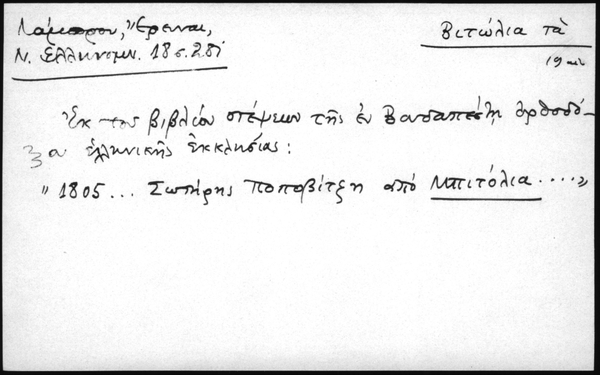 Λάμπρου, Ἔρευναι,
Ν. Ἑλληνομν. 18 σ. 281
Βιτώλια τὰ
19 αἰ.
Ἐκ τοῦ βιβλίου στέψεων τῆς ἐν Βουδαπέστῃ ὀρθοδό-
ξου ἑλληνικῆς Ἐκκλησίας:
"1805... Σωτήρης Ποποβίτζη ἀπὸ Μπιτόλια....."